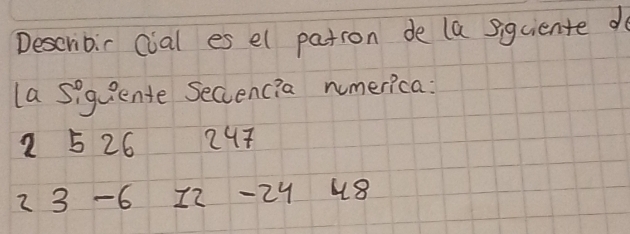 Describir Cual es el patron de la siguiente de
la siguiente secuencia numerica:
2 5 26 247
2 3 -6 12 -24 48